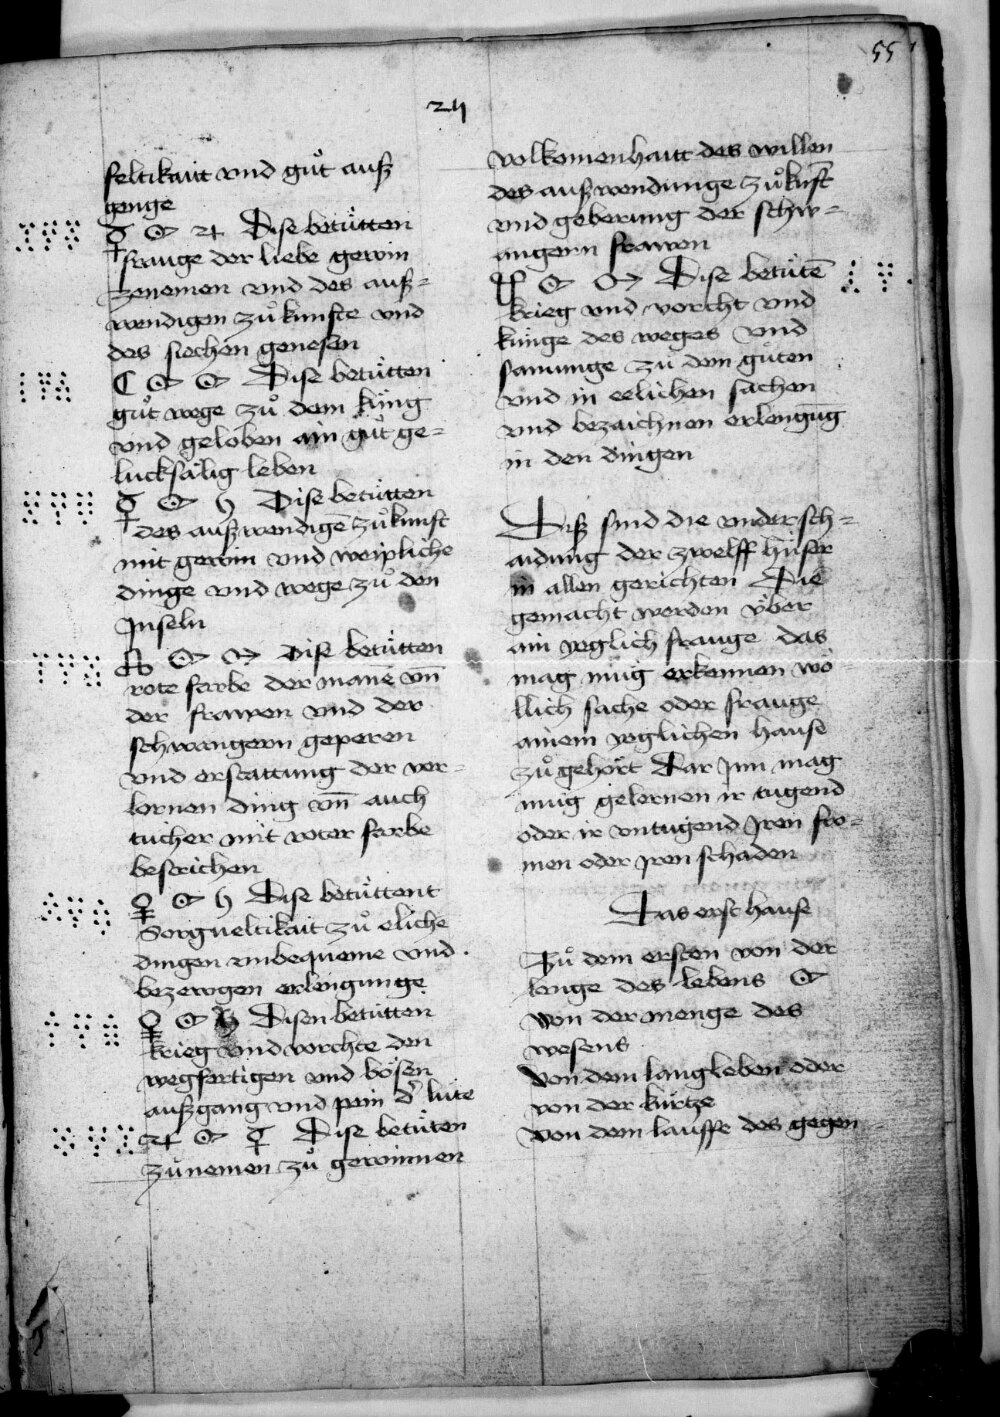 55
24
seltikaitt vnd gůt auß
genge
♀ ☉ ♃ Dise betütten
frauge der liebe gewin
zenemen vnd des auß=
wendigen zůkunfte vnd
des siechen genesen
☾ ☉ ☉ Dise betütten
gůt wege zů dem küng
vnd geloben ain gůt ge=
lucksälig leben
♀ ☉ ♄ Dise betütten
des außwendigē zůkunft
mit gewin vnd weipliche
dinge vnd wege zů den
Inseln
☉ Dise betütten
rote farbe der manē vn̄
der frawen vnd der
schwangern geperen
vnd erstattung der ver=
lornen ding vn̄ auch
tucher mit roter farbe
bestrichen
♀ ☉ ♄ Dise betüttent
Sorgueltikait zů eliche
dingen vnbequeme vnd
bezewgen erlengunge
♀ ☉ ♄ Disen betütten
krieg vnd vorchte den
wegfertigen vnd bösen
außgang vnd pein d' lüte
♃ ☉ Dise betüten
zůnemen zů gewinnen
volkomenhaitt des willen
des außwendunge zůkunft
vnd geberung der schw=
angern frawen
☉ Dise betütē
krieg vnd vorcht vnd
künge des weges vnd
samunge zů dem gůten
vnd in eelichen sachen
vnd bezaichnen erlengūg
in den dingen
Diß sind die vndersch=
aidung der zwelff hüser
in allen gerichten Die
gemacht werden über
ain yeglich frauge das
mag müg erkennen wö
llich sache oder frauge
ainem yeglichen hause
zůgehört Dar Inn mag
müg gelernen ir tugend
oder ir vntugend Iren fro=
men oder Iren schaden
Das erst hause
Zů dem ersten von der
lenge des lebens ☉
Von der menge des
wesens
Von dem lang leben oder
von der kürtze
Von dem lauffe des gegen